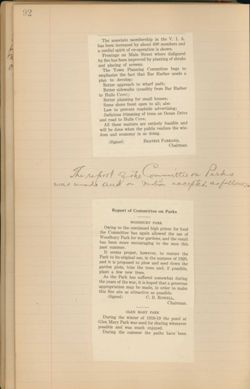 92
The associate membership in the V. I. A.
has been increased by about 400 members and
a cordial spirit of co-operation is shown.
Frontage on Main Street where disfigured
by fire has been improved by planting of shrubs
and placing of screens.
The Town Planning Committee begs to
emphasize the fact that Bar Harbor needs a
plan to develop:
Better approach to wharf part;
Better sidewalks (notably from Bar Harbor
to Hulls Cove);
Better planning for small houses;
Some shore front open to all; also
Law to prevent roadside advertising;
Judicious trimming of trees on Ocean Drive
and road to Hulls Cove;
All these matters are entirely feasible and
will be done when the public realizes the wis-
dom and economy in so doing.
(Signed)
Chairman
The report of the Committee on Parks
was made and on motion accepted, as follows
Report of Committee on Parks
WOODBURY PARK
Owing to the continued high prices for food
the Committee has again allowed the use of
Woodbury Park for war gardens, and the result
has been more encouraging to the men this
past summer.
It seems proper, however, to restore the
Park to its original use, in the summer of 1920,
and it is proposed to plow and seed down the
garden plots, trim the trees and, if possible,
plant a few new trees.
As the Park has suffered somewhat during
the years of the war, it is hoped that a generous
appropriation may be made, in order to make
this fine site as attractive as possible.
(Signed) C. B. ROWELL,
Chairman.
GLEN MARY PARK
During the winter of 1918-19 the pond at
Glen Mary Park was used for skating whenever
possible and was much enjoyed.
During the summer the paths have been